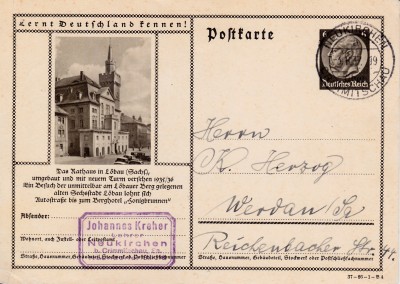 Lernt Deutschland kennen!
Postkarte
NEUKIRCHEN
Deutsches Reich
Das Rathaus in Löbau (Sachs),
umgebaut und mit neuem Turm versehen 1935/36
Ein Besuch der unmittelbar am Löbauer Berg gelegenen
alten Sechsstadt Löbau lohnt sich
Autostraße bis zum Berghotel „Honigbrunnen"
Absender:
Johannes Kreher
Lehrer
Neukirchen
b. Crimmitschau
Wohnort, auch Zustell- oder Leitpostamt
Straße, Hausnummer, Gebäudeteil, Stockwerk od. Postschließfachnummer
Herrn
K. Herzog
Werdau/Sa
Reichenbacher Str. 44.
Straße, Hausnummer, Gebäudeteil, Stockwerk oder Postschließfachnummer